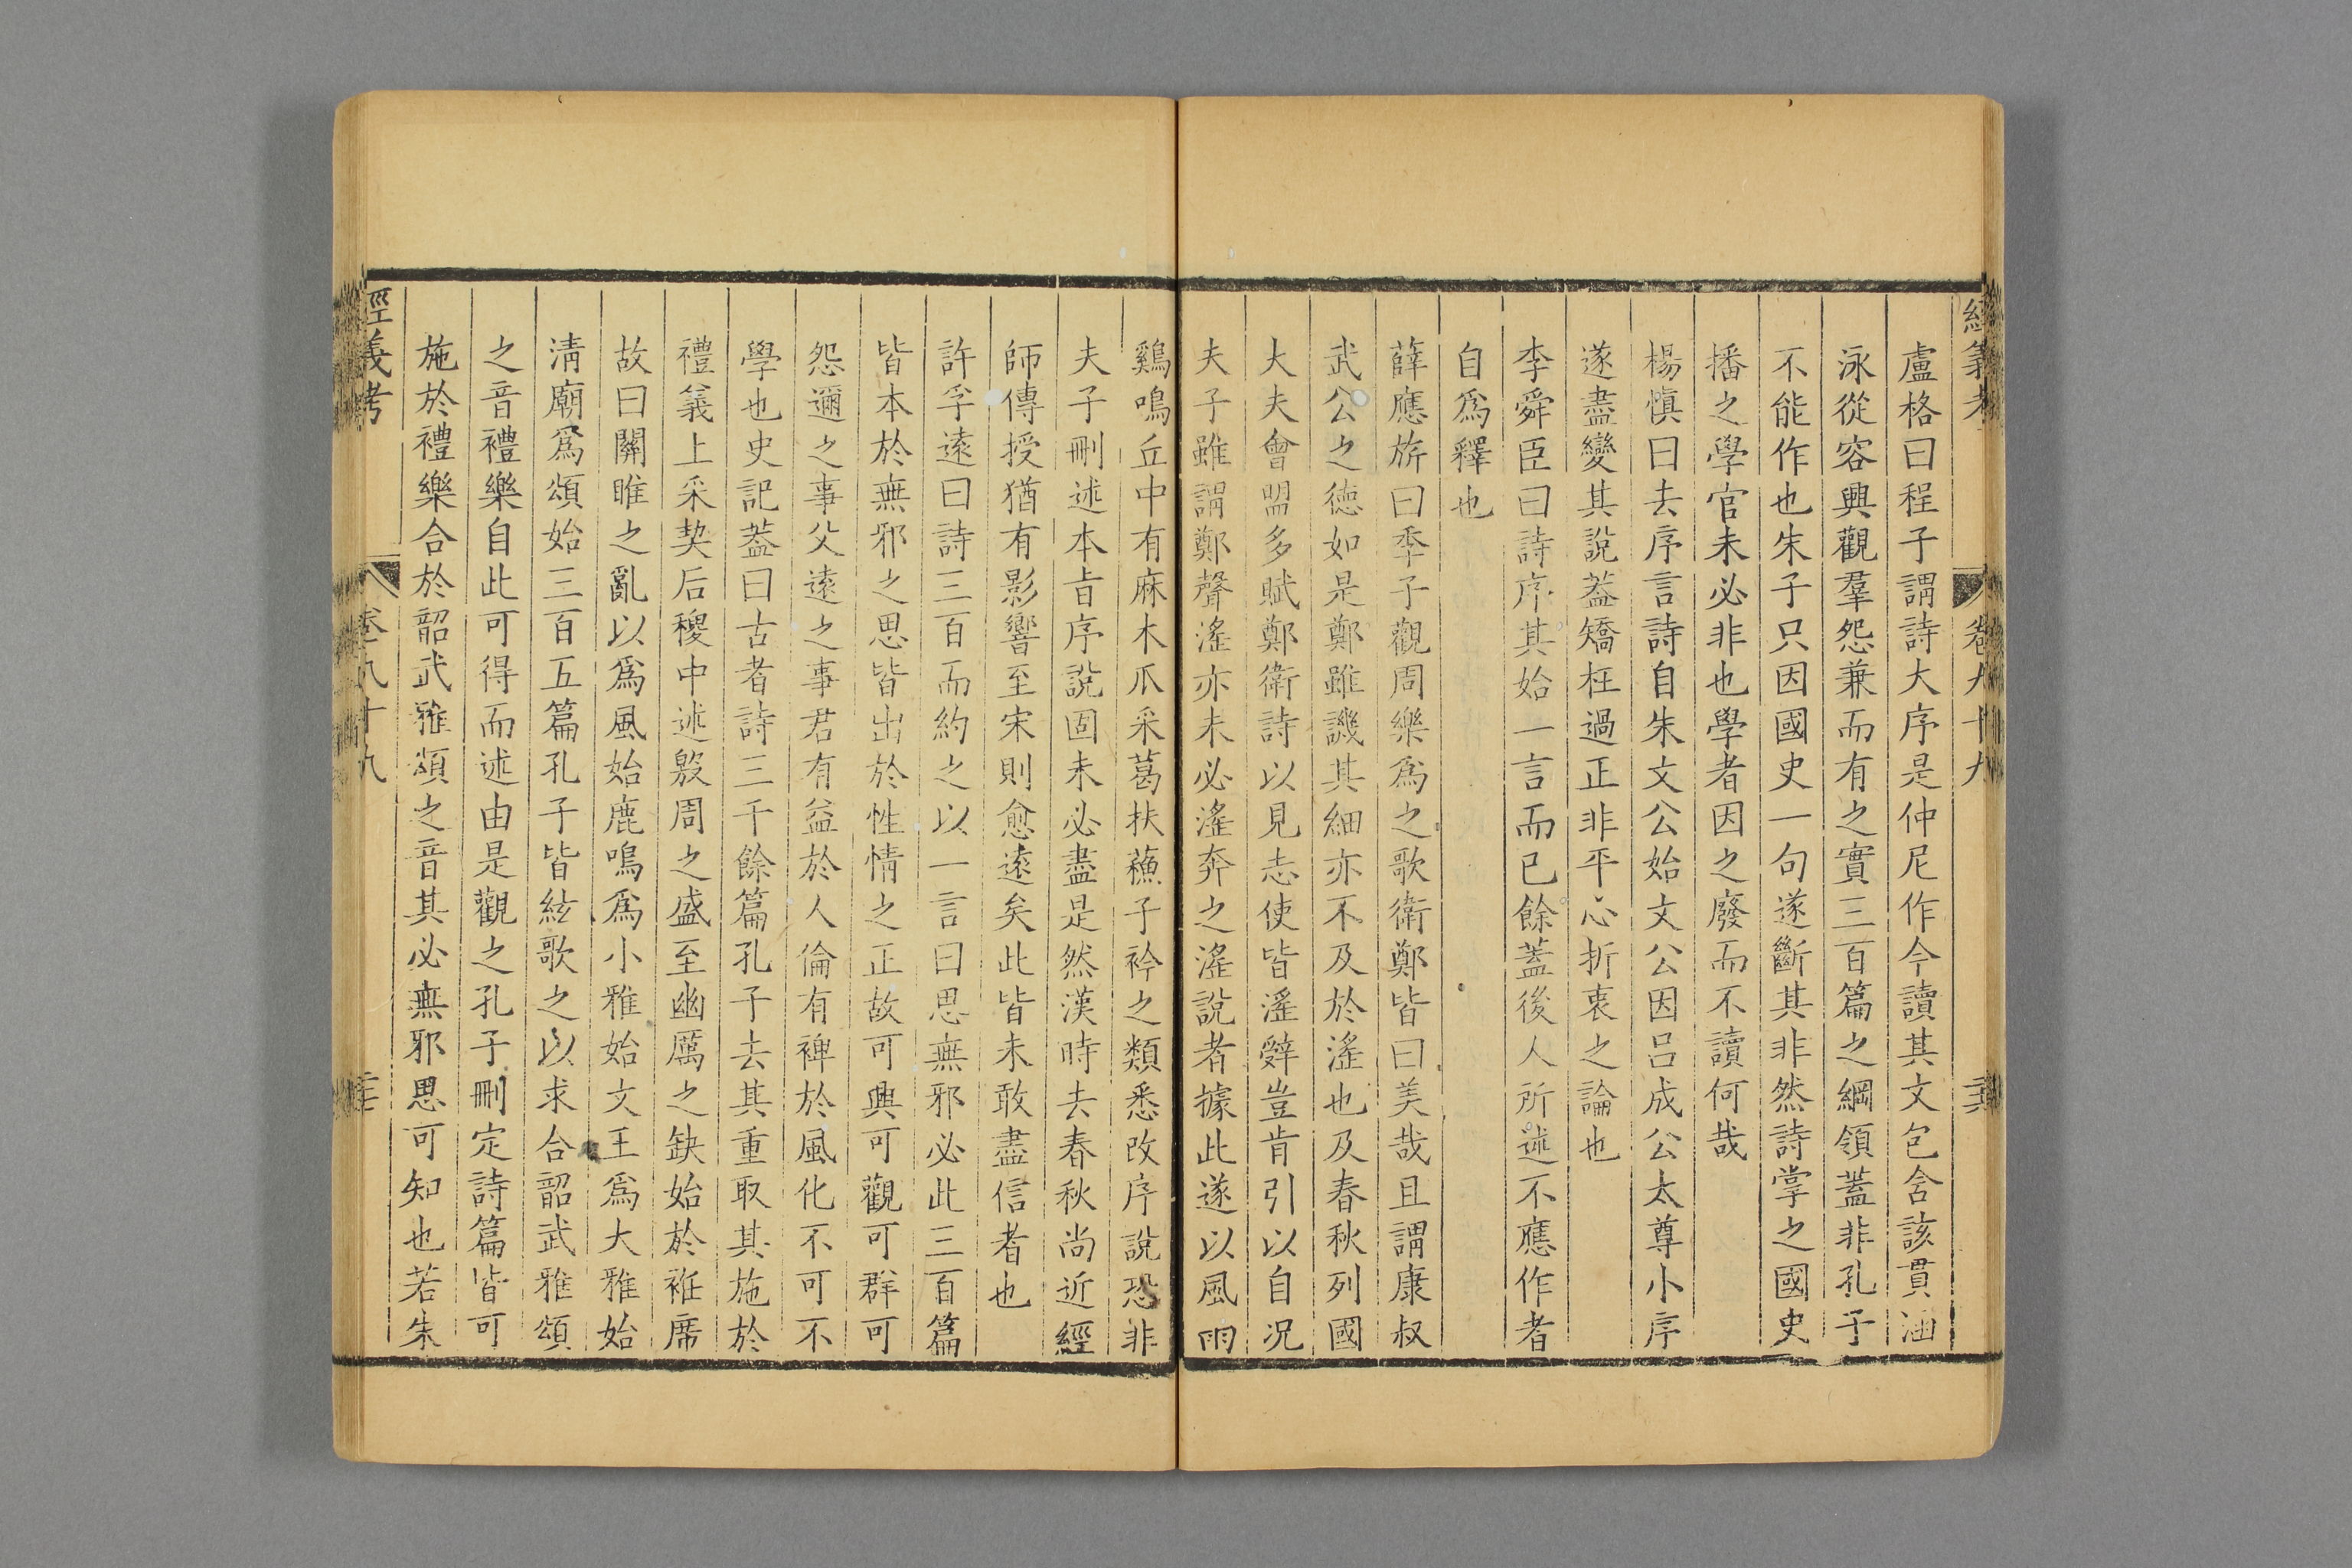 經義考
卷九十九
盧格曰程子謂詩大序是仲尼作今讀其文包含該貫涵
泳從容興觀羣怨兼而有之實三百篇之綱領蓋非孔子
不能作也朱子只因國史一句遂斷其非然詩掌之國史
播之學官未必非也學者因之廢而不讀何哉
楊慎曰去序言詩自朱文公始文公因呂成公太尊小序
遂盡變其說蓋矯枉過正非平心折衷之論也
李舜臣曰詩序其始一言而已餘蓋後人所述不應作者
自爲釋也
薛應旂曰季子觀周樂爲之歌衛鄭皆曰美哉且謂康叔
武公之德如是鄭雖譏其細亦不及於滛也及春秋列國
大夫會盟多賦鄭衛詩以見志使皆滛辭豈肯引以自況
夫子雖謂鄭聲滛亦未必滛奔之滛說者據此遂以風雨
鷄鳴丘中有麻木爪采葛扶蘓子衿之類悉改序說恐非
夫子刪述本旨序說固未必盡是然漢時去春秋尚近經
師傳授猶有影響至宋則愈遠矣此皆未敢盡信者也
許孚遠曰詩三百而約之以一言曰思無邪必此三百篇
皆本於無邪之思皆出於性情之正故可興可觀可群可
怨邇之事父遠之事君有益於人倫有裨於風化不可不
學也史記葢曰古者詩三千餘篇孔子去其重取其施於
禮義上采契后稷中述殷周之盛至幽厲之缺始於袵席
故曰關雎之亂以爲風始鹿鳴爲小雅始文王爲大雅始
淸廟爲頌始三百五篇孔子皆絃歌之以求合韶武雅頌
之音禮樂自此可得而述由是觀之孔子刪定詩篇皆可
施於禮樂合於韶武雅頌之音其必無邪思可知也若朱
經義考
卷九十九